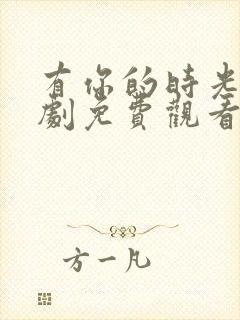 有你的時光
劇免費觀看
方一凡